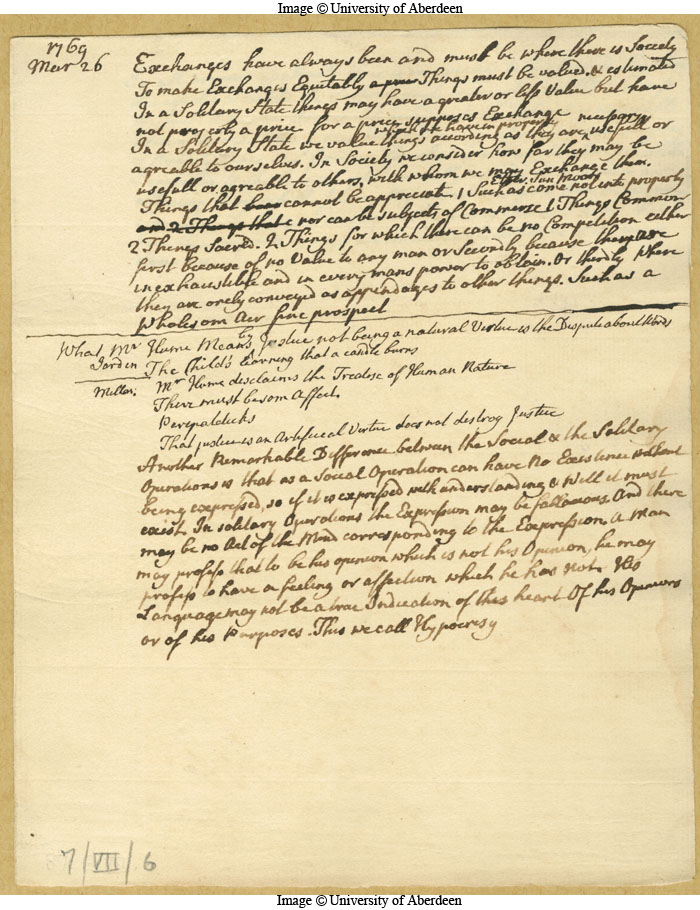 Image © University of Aberdeen
1769
Mar 26
Exchanges have always been and must be where there is Society
To make Exchanges Equitably a price Things must be valued & estimated
In a Solitary State things may have a greater or less Value but have
not properly a price for a price supposes Exchange
which we have in property necessary
In a Solitary State we value things according as they are usefull or
agreeable to ourselves. In Society we consider how far they may be
usefull or agreeable to others, with whom we may Exchange them.
Things that cannot be appreciate. 1 Such as come not into property
and 2 Things that nor can be subjects of Commerce 1 Things Common
2 Things Sacred. 2 Things for which there can be no Competition either
first because of no Value to any man or Secondly because they are
inexhaustible and in every mans power to obtain. Or thirdly where
they are onely conveyed as appendages to other things. Such as a
wholesom Air fine prospect
What Mr Hume Means by Justice not being a natural Vertue is the Dispute about Words
Jardin The Child's learning that a candle burns
Millar. Mr Hume disclaims the Treatise of Human Nature
There must be som Affect.
That justice is an Artificial Virtue does not destroy Justice
Another Remarkable Difference between the Social & the Solitary
Operations is that as a Social Operation can have No Existence without
being expressed, so if it is expressed with understanding & will it must
exist. In solitary Operations the Expression may be fallacious. And there
may be no Act of the Mind corresponding to the Expression. A Man
may profess that to be his opinion which is not his Opinion, he may
profess to have a feeling or affection which he has not. His
Language may not be a true Indication of his heart Of his Opinions
or of his Purposes. This we call Hypocrisy
7/VII/6
Image © University of Aberdeen